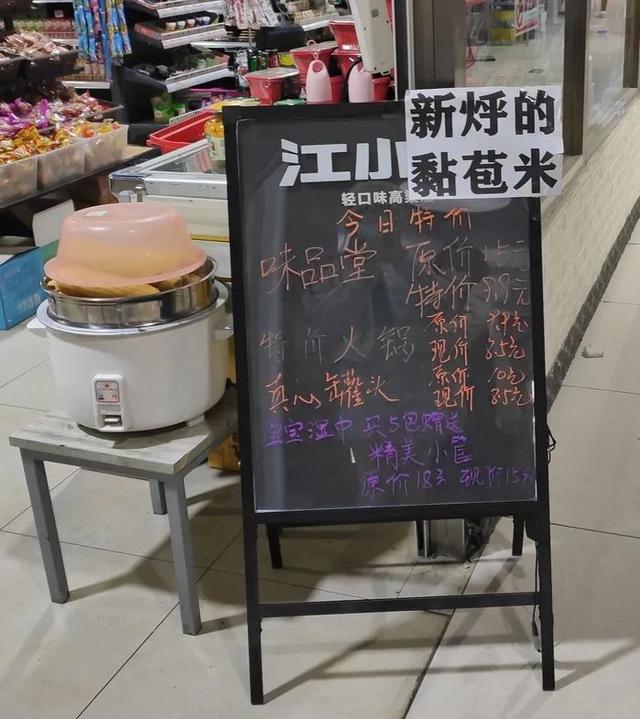 新烀的
黏苞米
江小
轻口味高粱
今日特价
味品堂 原价 15元
特价 9.9元
原价 9.9元
特价火锅 现价 8.5元
原价 10元
真心罐头 现价 8.5元
宝宝湿巾 买5包赠送
精美小筐
原价18元 现价15元